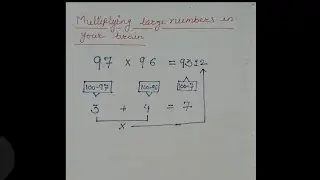 Multiplying large numbers in
your brain
97 × 96 = 9312
100-97 100-96 100-7
3 + 4 = 7
×